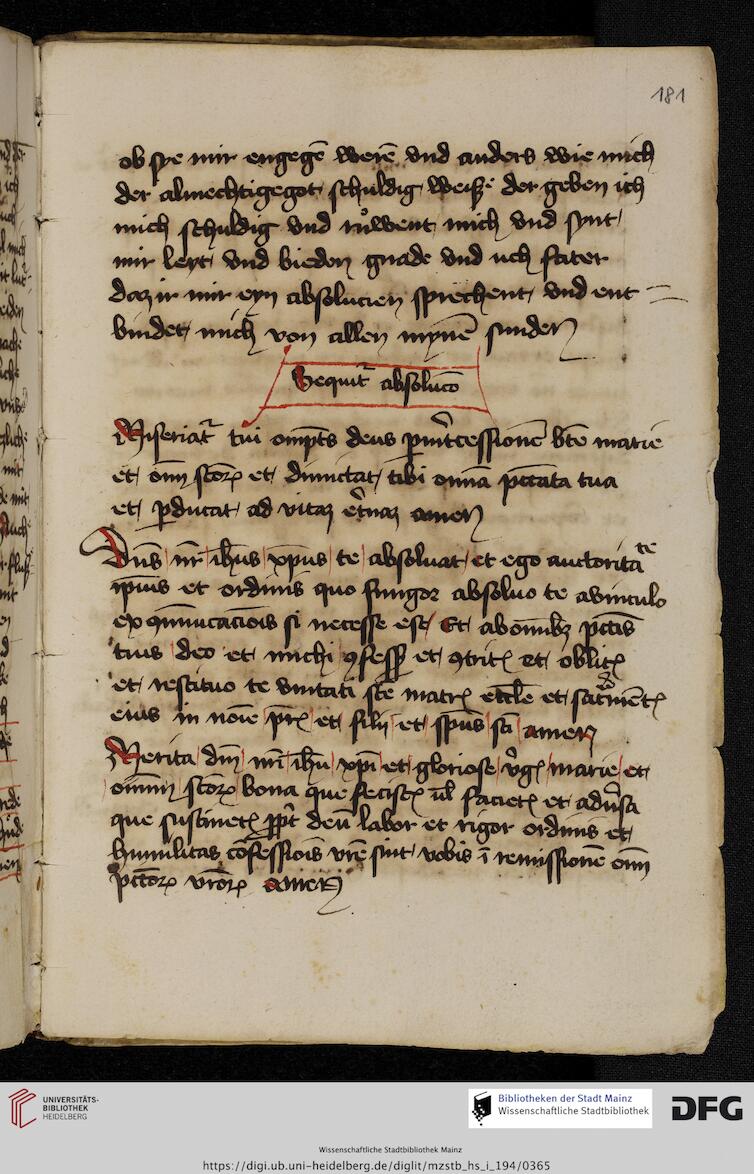 181
ob sye mir engegē werē vnd anders wie mich
der almechtigegot schuldig weiß der geben ich
mich schuldig vnd ruͦwent mich vnd synt
mir leyt vnd bieden gnade vnd uch stater
daz ir mir eyn absolucien sprechent vnd ent
bindet mich von allen mynē sunden
Sequit᷑ absoluco
Miseriat᷑ tui omp̄ts deus ꝑ int᷑cessionē bt̄e marie
et om̄ scōꝝ et dimictat tibi omīa pctāta tua
et ꝑducat ad vitaz et᷑naz amen
Dn̄s nr̄ ih̄us xp̄us te absoluat et ego auctoritate
ip̄ius et ordinis quo fungor absoluo te a vinculo
ex ꝯmuīcacīois si necesse est Et ab omībꝫ pctīs
tuis deo et michi ꝯfess et ꝯtrit et oblit
et restituo te vnitati sc̄e matr̄ eccl̄e et sac̄ment
eius in noīe pr̄ et filii et sp̄us sc̄i amen
Merita dn̄i nr̄i ih̄u xp̄i et gloriose v᷑g marie et
omīm scōꝝ bona que fecist vl̄ faciet et adu᷑sa
que sustinet ꝓpt᷑ deū labor et rigor ordinis et
humilitas cōfessiōis vr̄e sint vobis ī remissionē om̄
pctōꝝ vr̄oꝝ amen
UNIVERSITÄTS-
BIBLIOTHEK
HEIDELBERG
Bibliotheken der Stadt Mainz
Wissenschaftliche Stadtbibliothek
DFG
Wissenschaftliche Stadtbibliothek Mainz
https://digi.ub.uni-heidelberg.de/diglit/mzstb_hs_i_194/0365